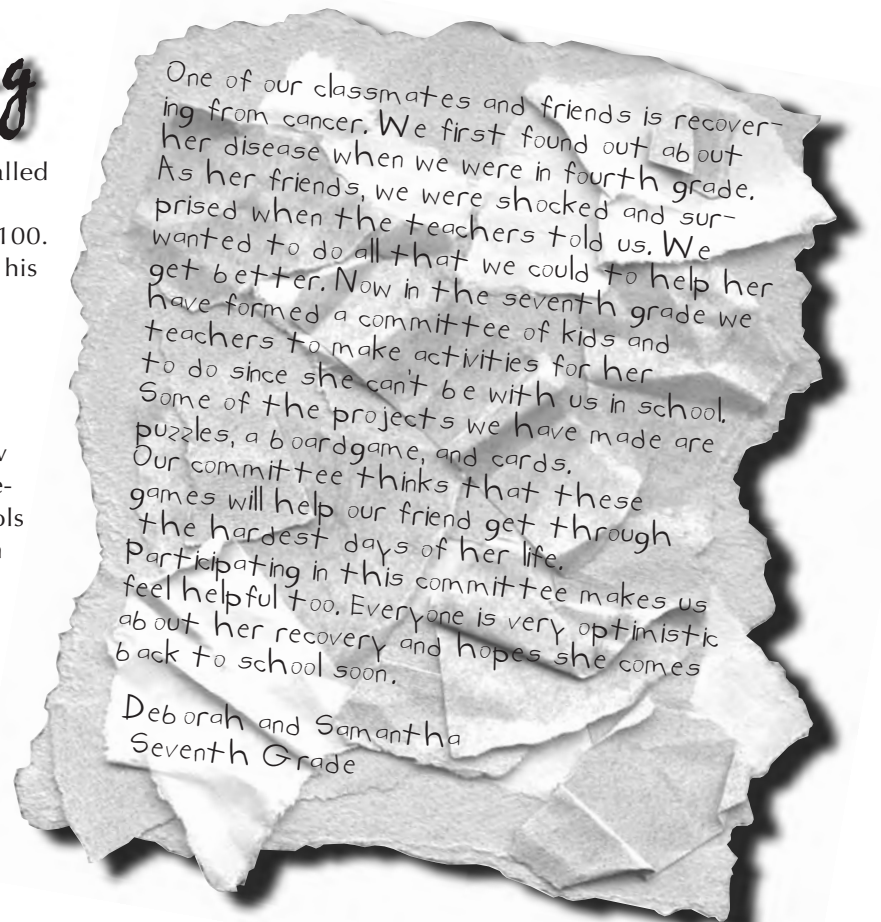 g
alled
100.
his
v
e-
ols
n
One of our classmates and friends is recover-
ing from cancer. We first found out about
her disease when we were in fourth grade.
As her friends, we were shocked and sur-
prised when the teachers told us. We
wanted to do all that we could to help her
get better. Now in the seventh grade we
have formed a committee of kids and
teachers to make activities for her
to do since she can't be with us in school.
Some of the projects we have made are
puzzles, a boardgame, and cards.
Our committee thinks that these
games will help our friend get through
the hardest days of her life.
Participating in this committee makes us
feel helpful too. Everyone is very optimistic
about her recovery and hopes she comes
back to school soon.
Deborah and Samantha
Seventh Grade